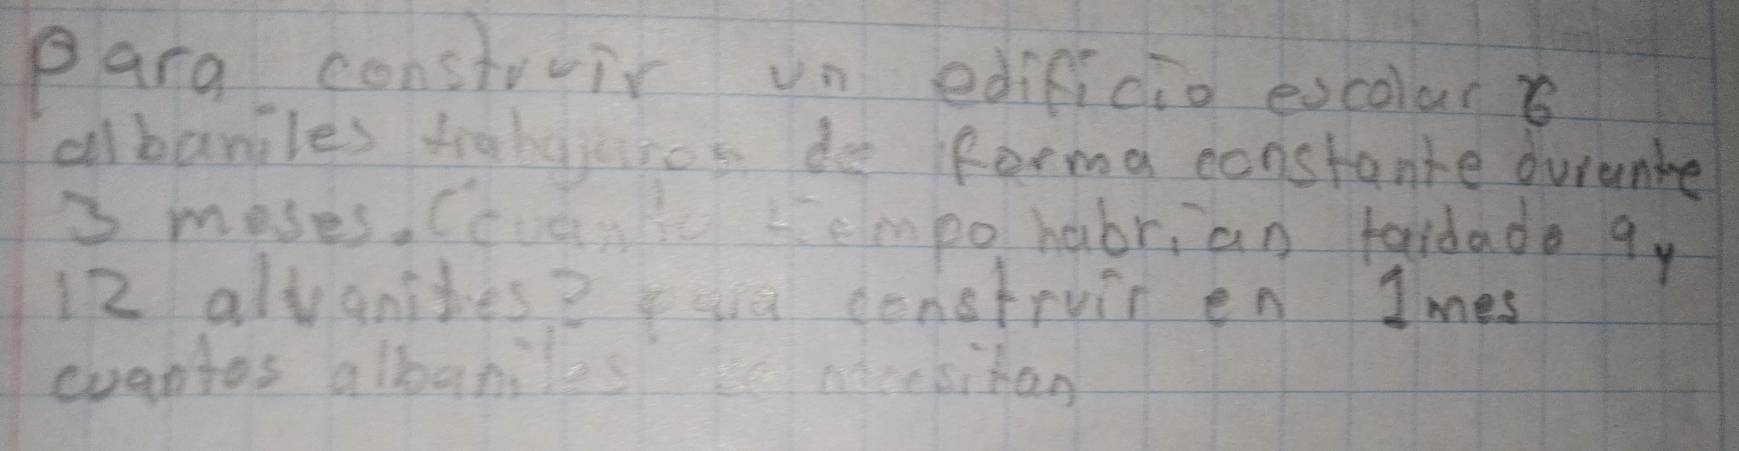 Para construir un edificio escolar 6
albaniles trabajaron de forma constante durante
3 meses. Ccuanto tiempo habrian taidado 9 y
12 alvaniles? para construir en 1 mes
cuantos albaniles se necesitan